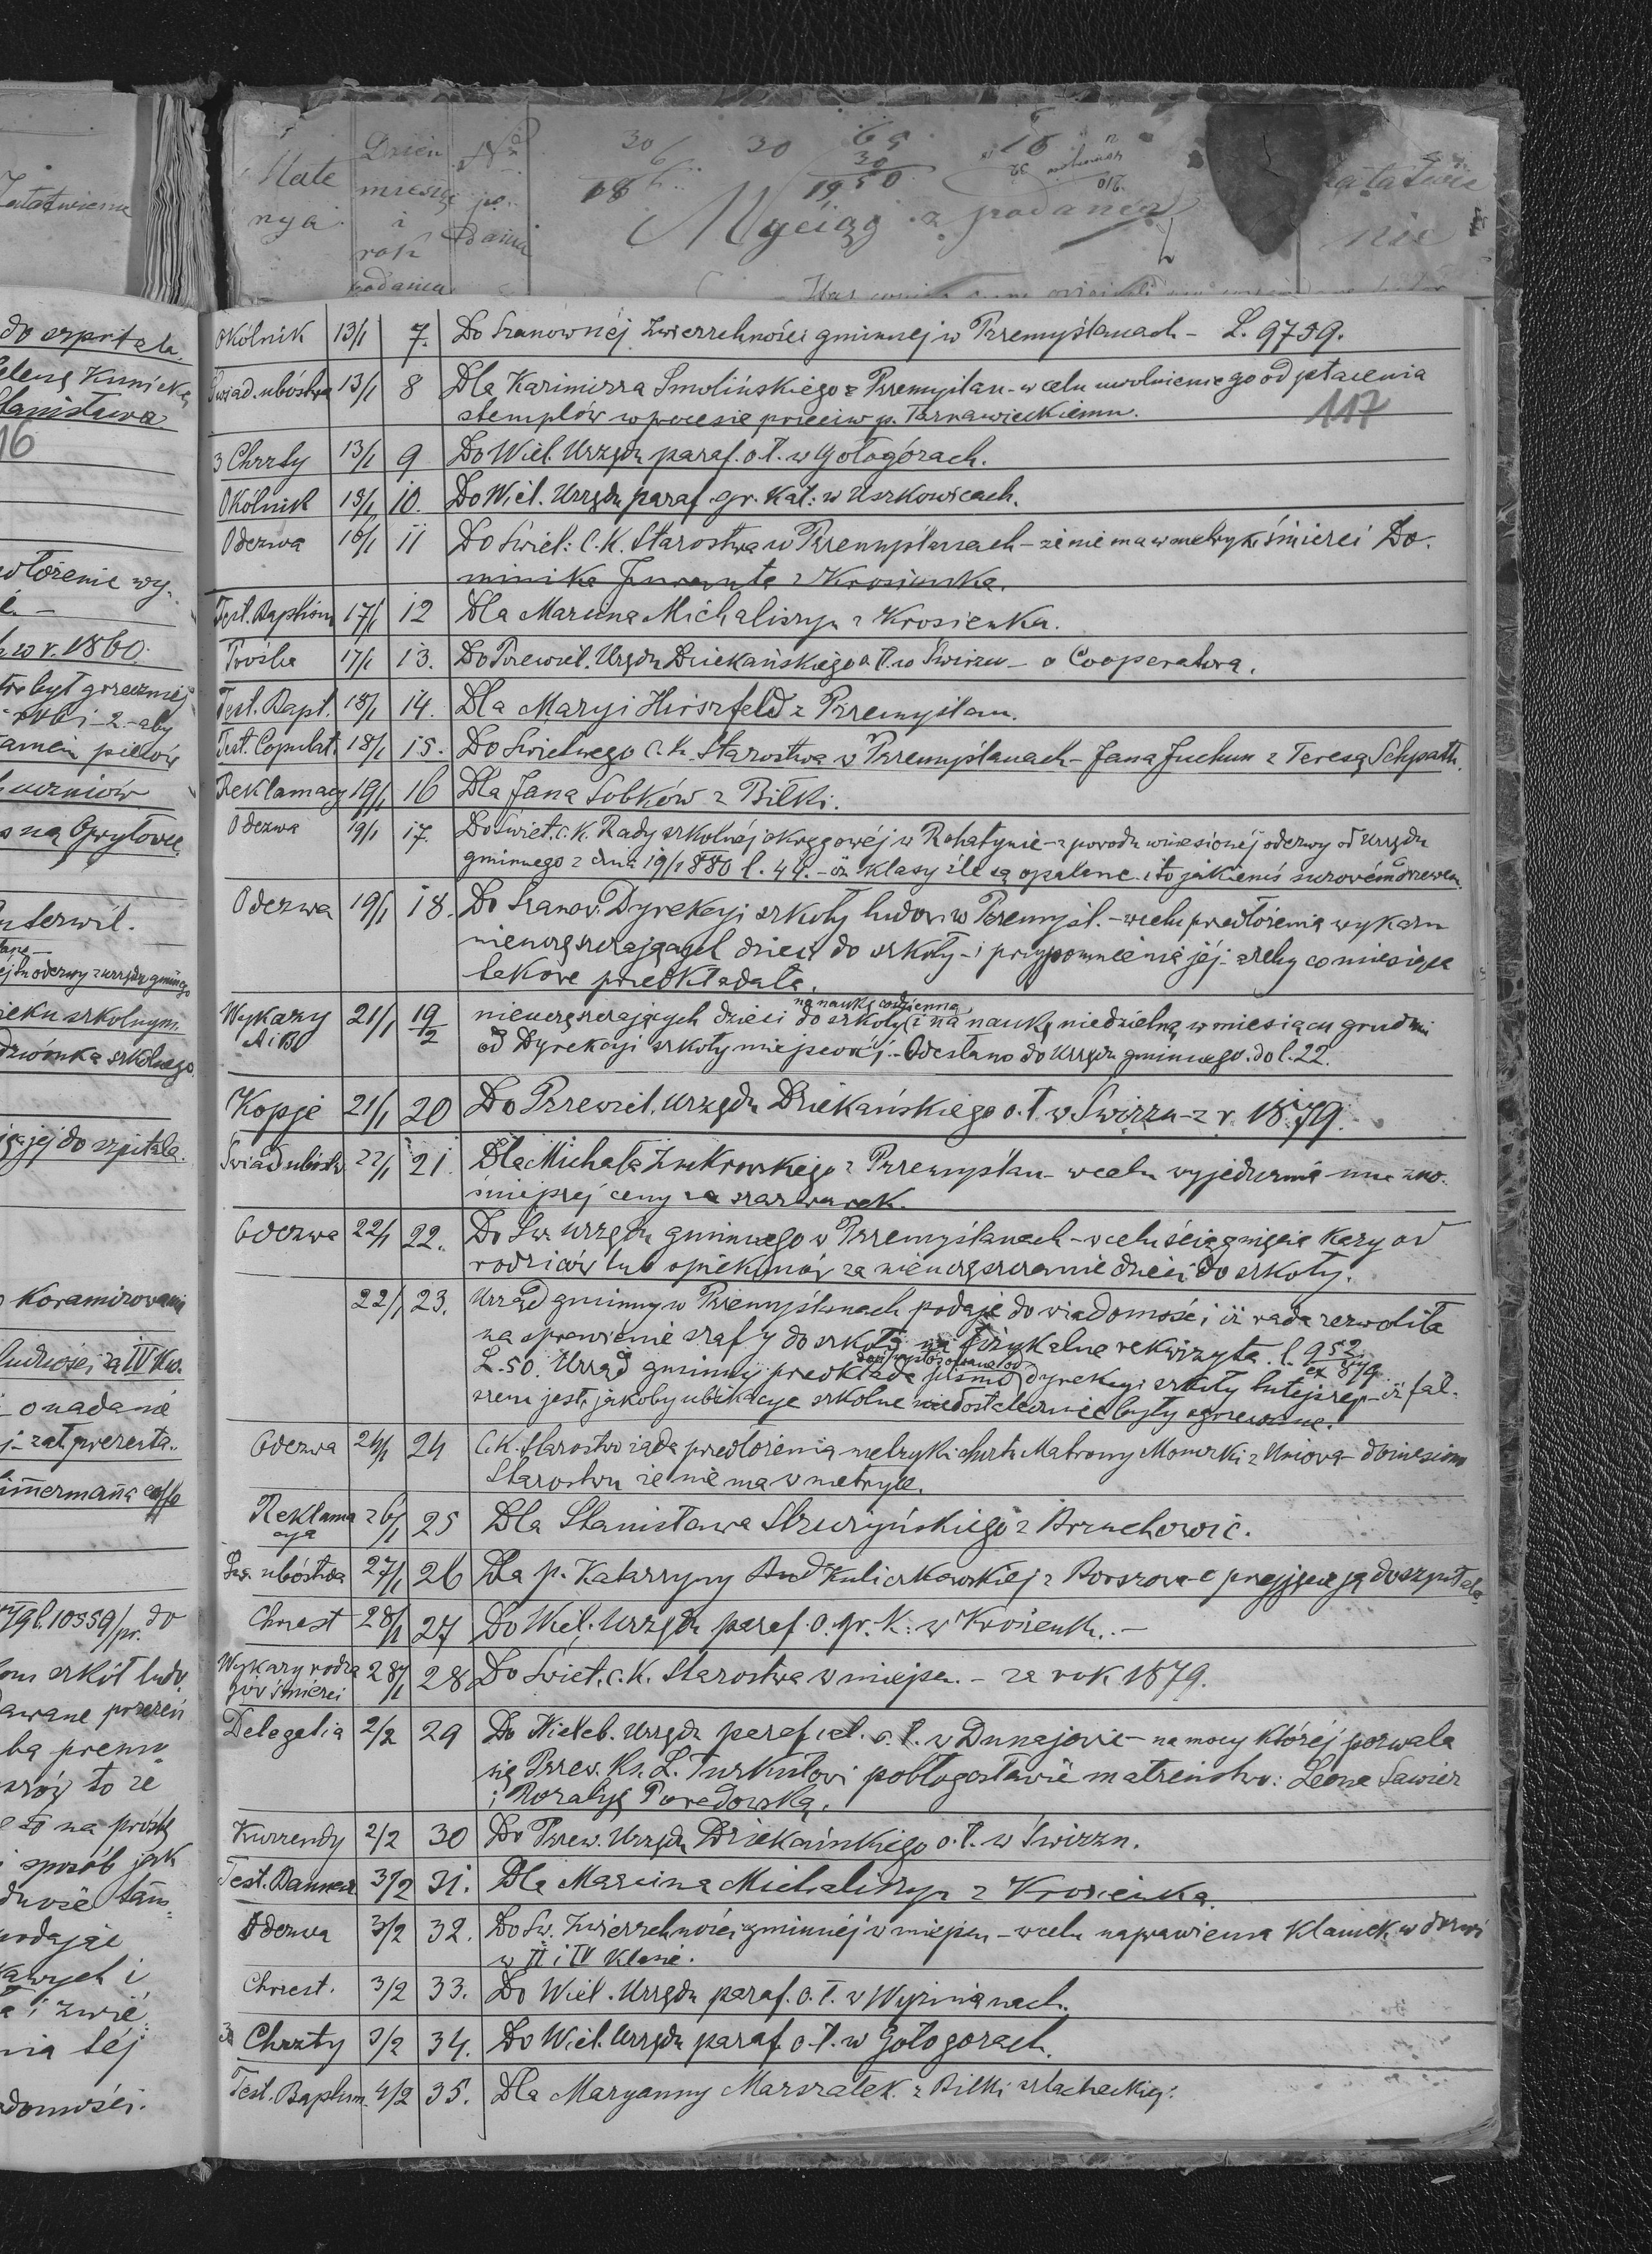 Załatwienie
do szpitala.
Kunicką
Stanisława
16
wy-
w r. 1860.
był grzeczniej
i 2. aby
uczniów
szkolnym
dzwonka szkolnego
jej do szpitala.
za IV kw.
o nadanie
10559/pr. do
szkół ludo.
to że
na prośbę
sposób jak
podając
i
tej
Mate
ryja
Dzień
miesiąc
i
rok
podania
No
po-
dania
Wyciąg z podania
Załatwie
nie
Okólnik 13/1 7. Do Szanownéj Zwierzchności gminnej w Przemyślanach - L. 9759.
Świad. ubóstwa 13/1 8 Dla Kazimirza Smolińskiego z Przemyślan - w celu uwolnienie go od płacenia
stemplów w procesie przeciw p. Tarnawieckiemu.
117
3 Chrzty 13/1 9 Do Wiel. Urzędu paraf. o. ł. w Gołogórach.
Okólnik 13/1 10. Do Wiel. Urzędu paraf. gr. Kat: w Uszkowicach.
Odezwa 16/1 11 Do Świet: C. K. Starostwa w Przemyślanach - że nie ma w metryk. śmierci Do-
minika z Krosienka.
Test. Baptism 17/1 12 Dla Marcina Michaliszyn z Krosienka.
Prośba 17/1 13. Do Przewiel. Urzędu Dziekańskiego o. ł. w Świrzu - o Cooperatora.
Test. Bapt. 18/1 14. Dla Maryi Hirszfeld z Przemyślan.
Test. Copulat. 18/1 15. Do Świetnego C. K. Starostwa w Przemyślanach - Jana Juchum z Teresą Schpath.
Reklamacy 19/1 16 Dla Jana Sobków z Biłki.
Odezwa 19/1 17. Do Świet. c. K. Rady szkolnéj okręgowéj w Rohatynie - z powodu wniesionéj odezwy od Urzędu
gminnego z dnia 19/1 880 l. 44. - iż klasy źle są opalane i to jakiemś surowém drzewem.
Odezwa 19/1 18. Do Szanow. Dyrekcyi szkoły ludow. w Przemyśl. - w celu przedłożenia wykazu
nieuczęszczających dzieci do szkoły - i przypomnienia jéj - ażeby co miesiąca
takowe przedkładała.
Wykazy
A i B
21/1 19/2 nieuczęszczających dzieci do szkoły na naukę codzienną i na naukę niedzielną w miesiącu grudniu
od Dyrekcyi szkoły miejscowéj. - Odesłano do Urzędu gminnego. do l. 22.
Kopje 21/1 20 Do Przewiel. Urzędu Dziekańskiego o. ł. w Świrzu - z r. 1879.
Świad ubóstw. 22/1 21. Dla Michała Zukrowskiego z Przemyślan - w celu wyjednania mu zno-
śniejszej ceny za szarwarek.
Odezwa 22/1 22. Do Św. Urzędu gminnego w Przemyślanach - w celu ściągnięcia kary od
rodziców lub opiekunów za nieuczęszczanie dzieci do szkoły.
22/1 23. Urząd gminny w Przemyślanach podaje do wiadomości iż rada zezwoliła
na sprawienie szafy do szkoły na fizykalne rekwizyta. l. 952 ex 879
L. 50. Urząd gminny przedkłada pismo dyrekcyi szkoły tutejszej - iż fał-
szem jest, jakoby ubikacye szkolne niedostatecznie były ogrzewane.
Odezwa 26/1 24 C. K. Starostwo żąda przedłożenia metryki chrztu Matrony z Uniowa - doniesiono
Starostwu że nie ma w metryce.
Reklama
cya
26/1 25 Dla Stanisława Struzyńskiego z Brzuchowic.
Św. ubóstwa 27/1 26 Dla p. Katarzyny Kuliczkowskiéj z Borszowa - o przyjęcie ją do szpitala.
Chrzest 28/1 27 Do Wiel. Urzędu paraf. o. gr. K. w Krosienk. -
Wykazy rodza
jów śmierci
28/1 28 Do Świet. c. K. Starostwa w miejscu. - za rok 1879.
Delegatia 2/2 29 Do Wieleb. Urzędu paraf. o. ł. w Dunajowie - na mocy któréj pozwala
się Przew. Ks. L. Turkułowi pobłogosławić małżeństwo: Leona Sawier
i Rozalyę Poredowską.
Kurrendy 2/2 30 Do Przew. Urzędu Dziekańskiego o. ł. w Świrzu.
Test. Bannor 3/2 31. Dla Marcina Michaliszyn z Krosienka.
Odezwa 3/2 32. Do Św. Zwierzchności gminnéj w miejscu - w celu naprawienia klamek w drzwi
w II i IV klasie.
Chrzest. 3/2 33. Do Wiel. Urzędu paraf. o. ł. w Wyżnianach.
3 Chrzty 3/2 34. Do Wiel. Urzędu paraf. o. ł. w Gołogorach.
Test. Baptism. 4/2 35. Dla Maryanny Marszałek z Biłki szlacheckiej.